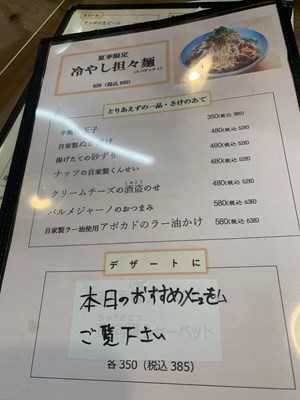 夏季限定
冷やし担々麺
とりあえずの一品・さけのあて
350(税込 385)
自家製
480(税込 528)
揚げたての砂ずり
480(税込 528)
ナッツの自家製くんせい
480(税込 528)
クリームチーズの酒盗のせ
480(税込 528)
パルメジャーノのおつまみ
580(税込 638)
自家製ラー油使用アボカドのラー油かけ
580(税込 638)
デザートに
本日のおすすめメニューも
ご覧下さい
各 350（税込 385）